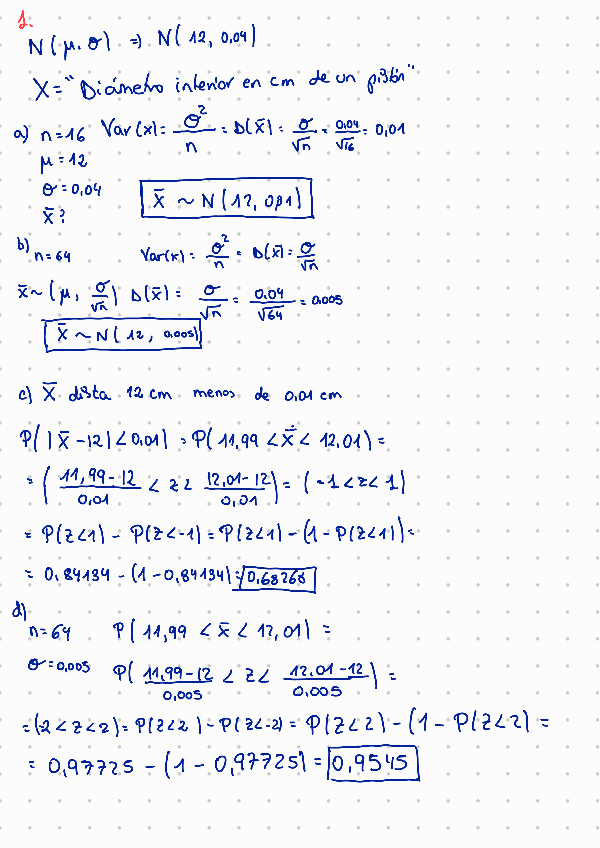 1.
N(μ, σ) => N(12, 0,04)
X = "Diámetro interior en cm de un pistón"
a) n=16 Var(x) = σ²/n = D(x̄) = σ/√n = 0,04/√16 = 0,01
μ = 12
σ = 0,04
x̄?
X̄ ~ N(12, 0,01)
b) n=64 Var(x) = σ²/n = D(x̄) = σ/√n
x̄ ~ (μ, σ/√n) D(x̄) = σ/√n = 0,04/√64 = 0,005
X̄ ~ N(12, 0,005)
c) X̄ dista 12 cm menos de 0,01 cm
P(|X̄ - 12| < 0,01) = P(11,99 < X̄ < 12,01) =
= (11,99-12/0,01 < z < 12,01-12/0,01) = (-1 < z < 1)
= P(z<1) - P(z<-1) = P(z<1) - (1 - P(z<1)) =
= 0,84134 - (1 - 0,84134) = 0,68268
d)
n=64 P(11,99 < x̄ < 12,01) =
σ = 0,005 P(11,99-12/0,005 < z < 12,01-12/0,005) =
= (-2 < z < 2) = P(z<2) - P(z<-2) = P(z<2) - (1 - P(z<2) =
= 0,97725 - (1 - 0,97725) = 0,9545